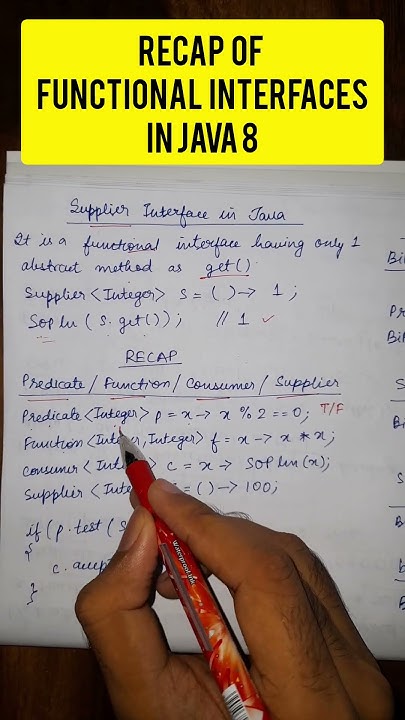 RECAP OF
FUNCTIONAL INTERFACES
IN JAVA 8
Supplier Interface in Java
It is a functional interface having only 1
abstract method as get()
Supplier <Integer> s = ( ) → 1 ;
SOP ln ( s. get( ) ) ; // 1 ✓
RECAP
Predicate / Function / Consumer / Supplier
Predicate <Integer> p = x → x % 2 == 0; T/F
Function <Integer, Integer> f = x → x * x;
Consumer < c = x → SOP ln (x);
Supplier < = ( ) → 100;
if ( p. test (
{
c.
}
Waterproof Ink